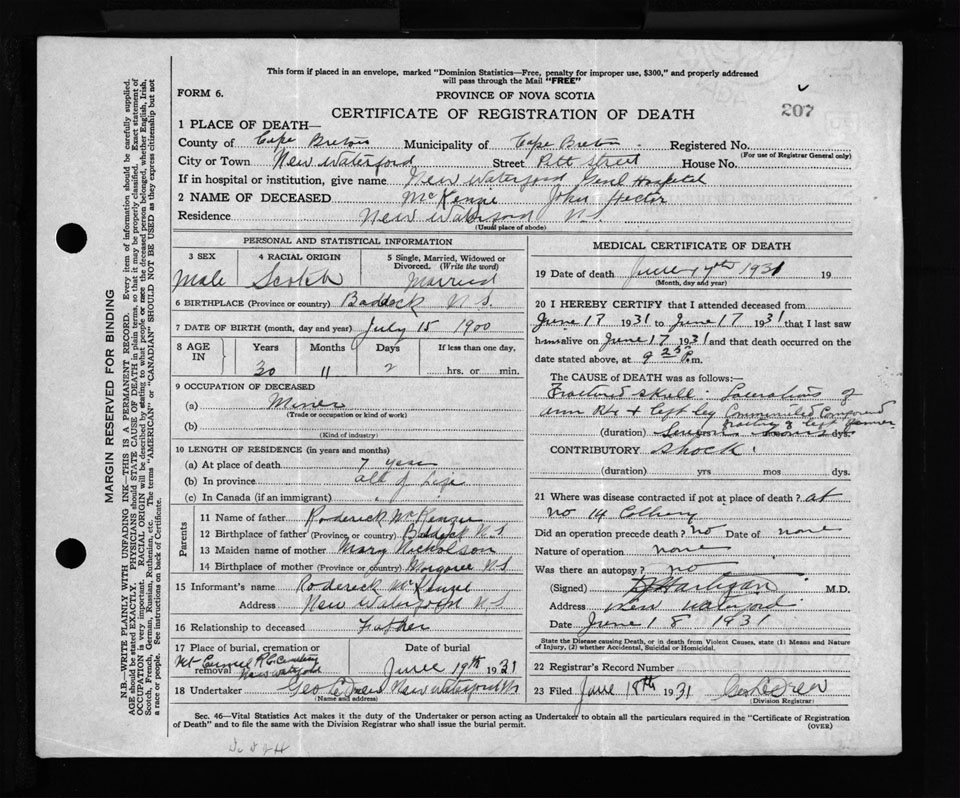 This form if placed in an envelope, marked "Dominion Statistics—Free, penalty for improper use, $300," and properly addressed
will pass through the Mail "FREE"
FORM 6.
PROVINCE OF NOVA SCOTIA
207
CERTIFICATE OF REGISTRATION OF DEATH
1 PLACE OF DEATH—
County of Cape Breton Municipality of Cape Breton Registered No.
(For use of Registrar General only)
City or Town New Waterford Street Pitt Street House No.
If in hospital or institution, give name New Waterford Genl Hospital
2 NAME OF DECEASED McKenzie John Hector
Residence New Waterford N.S.
(Usual place of abode)
PERSONAL AND STATISTICAL INFORMATION
3 SEX 4 RACIAL ORIGIN 5 Single, Married, Widowed or
Divorced. (Write the word)
Male Scotch Married
6 BIRTHPLACE (Province or country) Baddeck N.S.
7 DATE OF BIRTH (month, day and year) July 15 1900
8 AGE IN Years Months Days If less than one day,
30 11 2 hrs. or min.
9 OCCUPATION OF DECEASED
(a) Miner
(Trade or occupation or kind of work)
(b)
(Kind of industry)
10 LENGTH OF RESIDENCE (in years and months)
(a) At place of death 7 years
(b) In province all of Life
(c) In Canada (if an immigrant)
Parents
11 Name of father Roderick McKenzie
12 Birthplace of father (Province or country) Baddeck N.S
13 Maiden name of mother Mary Nicholson
14 Birthplace of mother (Province or country) Margaree N.S
15 Informant's name Roderick McKenzie
Address New Waterford N.S
16 Relationship to deceased Father
17 Place of burial, cremation or removal Date of burial
Mt Carmel R.C. Cemetery
New Waterford June 19th 1931
18 Undertaker Geo C Drew New Waterford NS
(Name and address)
MEDICAL CERTIFICATE OF DEATH
19 Date of death June 17th 1931 19
(Month, day and year)
20 I HEREBY CERTIFY that I attended deceased from
June 17 1931 to June 17 1931 that I last saw
him alive on June 17 1931 and that death occurred on the
date stated above, at 9 25 P.m.
The CAUSE OF DEATH was as follows:—
Fractured skull. Lacerations of
arm Rt & left leg Comminuted Compound
fracture of left femur
(duration) dys.
CONTRIBUTORY Shock
(duration) yrs mos dys.
21 Where was disease contracted if not at place of death? at
No 14 Colliery
Did an operation precede death? No Date of none
Nature of operation none
Was there an autopsy? no
(Signed) Hartigan M.D.
Address New Waterford
Date June 18 1931
State the Disease causing Death, or in death from Violent Causes, state (1) Means and Nature
of Injury, (2) whether Accidental, Suicidal or Homicidal.
22 Registrar's Record Number
23 Filed June 18th 1931 Geo C Drew
(Division Registrar)
Sec. 46—Vital Statistics Act makes it the duty of the Undertaker or person acting as Undertaker to obtain all the particulars required in the "Certificate of Registration
of Death" and to file the same with the Division Registrar who shall issue the burial permit.
(OVER)
MARGIN RESERVED FOR BINDING
N.B.—WRITE PLAINLY WITH UNFADING INK—THIS IS A PERMANENT RECORD. Every item of information should be carefully supplied.
AGE should be stated EXACTLY. PHYSICIANS should STATE CAUSE OF DEATH in plain terms, so that it may be properly classified. Exact statement of
OCCUPATION is very important. RACIAL ORIGIN will be described by stating to what people or race the deceased person belonged, whether English, Irish,
Scotch, French, German, Russian, Ruthenian, etc. The terms "AMERICAN" or "CANADIAN" SHOULD NOT BE USED as they express citizenship but not
a race or people. See instructions on back of Certificate.